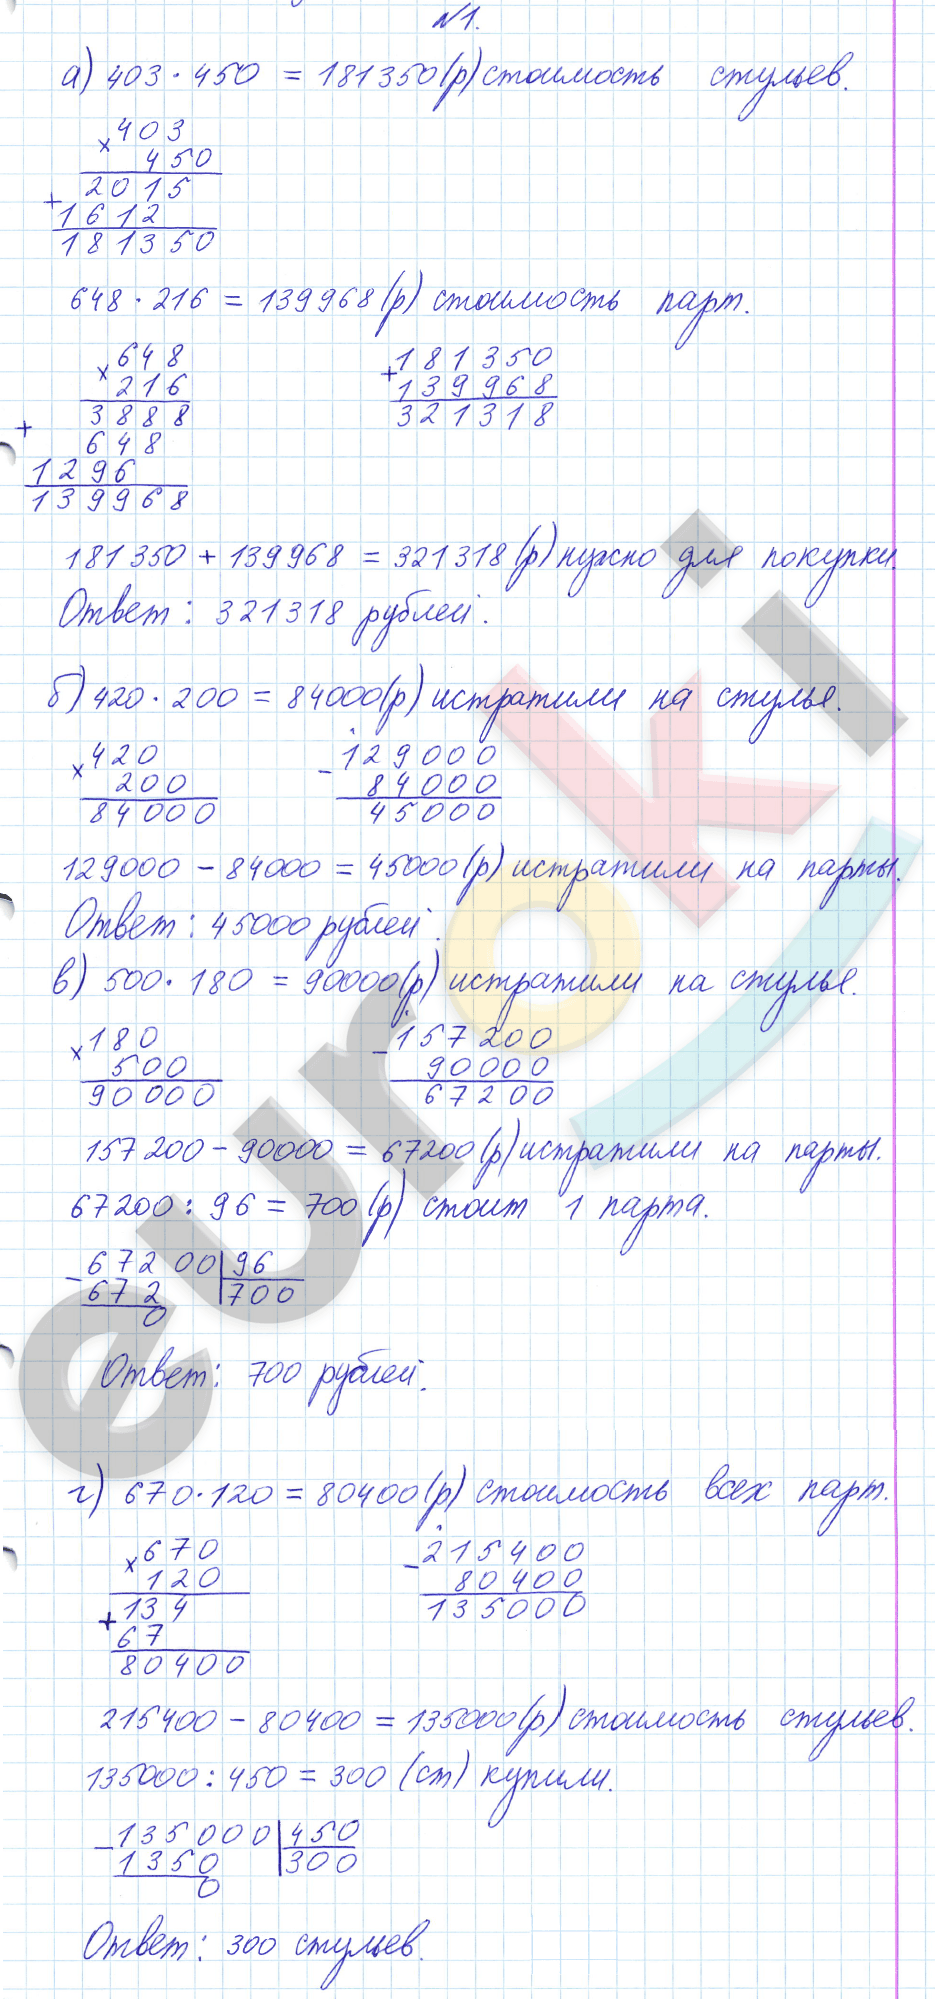 №1.
а) 403 · 450 = 181350 (р) стоимость стульев.
× 403
450
2015
+ 1612
181350
648 · 216 = 139968 (р) стоимость парт.
× 648
216
3888
+ 648
1296
139968
+ 181350
139968
321318
181350 + 139968 = 321318 (р) нужно для покупки.
Ответ: 321318 рублей.
б) 420 · 200 = 84000 (р) истратили на стулья.
× 420
200
84000
- 129000
84000
45000
129000 - 84000 = 45000 (р) истратили на парты.
Ответ: 45000 рублей.
в) 500 · 180 = 90000 (р) истратили на стулья.
× 180
500
90000
- 157200
90000
67200
157200 - 90000 = 67200 (р) истратили на парты.
67200 : 96 = 700 (р) стоит 1 парта.
- 67200 | 96
672 | 700
0
Ответ: 700 рублей.
г) 670 · 120 = 80400 (р) стоимость всех парт.
× 670
120
+ 134
67
80400
- 215400
80400
135000
215400 - 80400 = 135000 (р) стоимость стульев.
135000 : 450 = 300 (ст) купили.
- 135000 | 450
1350 | 300
0
Ответ: 300 стульев.
euroki